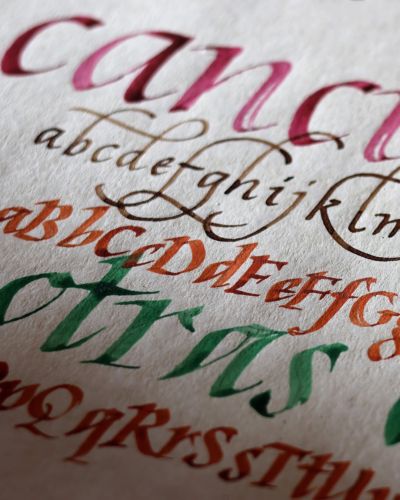 canc
abcdefghijklm
aBbCcDdEeFfGg
otras
pQqRrSsTtU